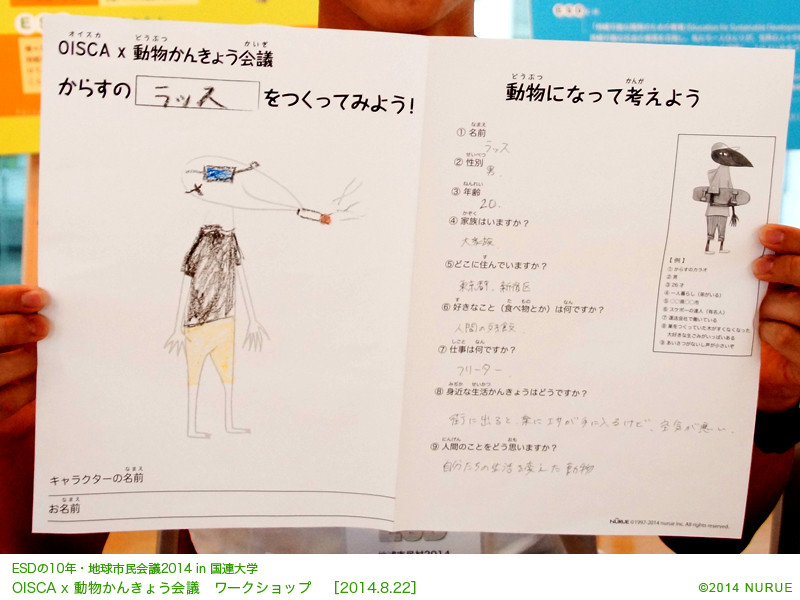 OISCA x 動物かんきょう会議
オイスカ どうぶつ かいぎ
からすの ラッス をつくってみよう!
キャラクターの名前
なまえ
お名前
なまえ
動物になって考えよう
どうぶつ かんが
① 名前
なまえ
ラッス
② 性別
せいべつ
男.
③ 年齢
ねんれい
20.
④ 家族はいますか?
かぞく
大家族
⑤どこに住んでいますか?
す
東京都、新宿区
⑥ 好きなこと(食べ物とか)は何ですか?
す た もの なん
人間の
⑦ 仕事は何ですか?
しごと なん
フリーター.
⑧ 身近な生活かんきょうはどうですか?
みぢか せいかつ
街に出ると 楽に エサが手に入るけど、空気が悪い.
⑨ 人間のことをどう思いますか?
にんげん おも
自分たちの生活を変えた動物
【 例 】
① からすのカラオ
② 男
③ 26才
④ 一人暮らし(弟がいる)
⑤ 〇〇県〇〇市
⑥ スケボーの達人(有名人)
⑦ 運送会社で働いている
⑧ 巣をつくっていた木がすくなくなった
大好きな生ごみがいっぱいある
⑨ あいさつがないし声が小さいぞ
NURUE ©1997-2014 nurue Inc. All rights reserved.
地球市民村2014
ESDの10年・地球市民会議2014 in 国連大学
OISCA x 動物かんきょう会議 ワークショップ [2014.8.22]
©2014 NURUE